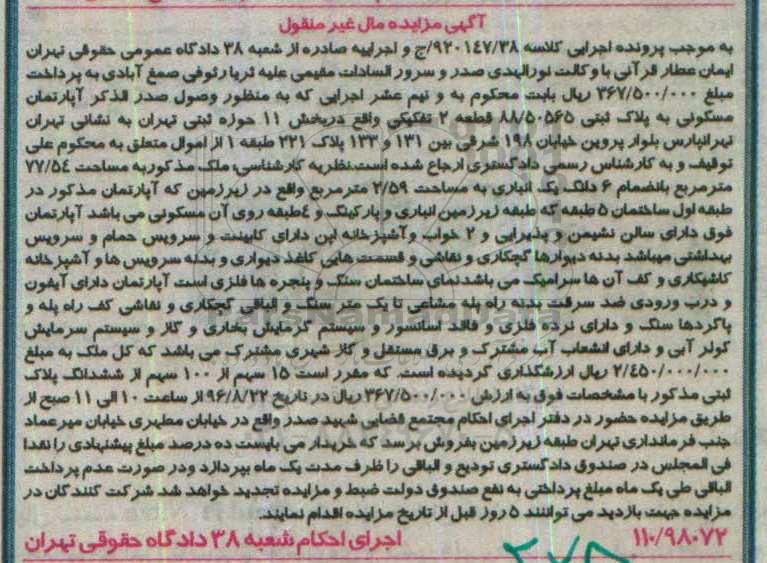 آگهی مزایده مال غیر منقول
به موجب پرونده اجرایی کلاسه ۹۲۰۱۴۷/۳۸/ج و اجراییه صادره از شعبه ۳۸ دادگاه عمومی حقوقی تهران
ایمان عطار قرآنی با وکالت نورالهدی صدر و سرور السادات مقیمی علیه ثریا رئوفی صمغ آبادی به پرداخت
مبلغ ۳۶۷/۵۰۰/۰۰۰ ریال بابت محکوم به و نیم عشر اجرایی که به منظور وصول صدر الذکر آپارتمان
مسکونی به پلاک ثبتی ۸۸/۵۰۵۶۵ قطعه ۲ تفکیکی واقع دربخش ۱۱ حوزه ثبتی تهران به نشانی تهران
تهرانپارس بلوار پروین خیابان ۱۹۸ شرقی بین ۱۳۱ و ۱۳۳ پلاک ۲۲۱ طبقه ۱ از اموال متعلق به محکوم علی
توقیف و به کارشناس رسمی دادگستری ارجاع شده است.نظریه کارشناسی: ملک مذکور به مساحت ۷۷/۵۴
مترمربع بانضمام ۶ دانگ یک انباری به مساحت ۲/۵۹ مترمربع واقع در زیرزمین که آپارتمان مذکور در
طبقه اول ساختمان ۵ طبقه که طبقه زیرزمین انباری و پارکینگ و ۴طبقه روی آن مسکونی می باشد آپارتمان
فوق دارای سالن نشیمن و پذیرایی و ۲ خواب وآشپزخانه اپن دارای کابینت و سرویس حمام و سرویس
بهداشتی میباشد بدنه دیوارها گچکاری و نقاشی و قسمت هایی کاغذ دیواری و بدنه سرویس ها و آشپزخانه
کاشیکاری و کف آن ها سرامیک می باشد.نمای ساختمان سنگ و پنجره ها فلزی است آپارتمان دارای آیفون
و درب ورودی ضد سرقت بدنه راه پله مشاعی تا یک متر سنگ و الباقی گچکاری و نقاشی کف راه پله و
پاگردها سنگ و دارای نرده فلزی و فاقد آسانسور و سیستم گرمایش بخاری و گاز و سیستم سرمایش
کولر آبی و دارای انشعاب آب مشترک و برق مستقل و گاز شهری مشترک می باشد که کل ملک به مبلغ
۲/۴۵۰/۰۰۰/۰۰۰ ریال ارزشگذاری گردیده است. که مقرر است ۱۵ سهم از ۱۰۰ سهم از ششدانگ پلاک
ثبتی مذکور با مشخصات فوق به ارزش ۳۶۷/۵۰۰/۰۰۰ ریال در تاریخ ۹۶/۸/۲۲ از ساعت ۱۰ الی ۱۱ صبح از
طریق مزایده حضور در دفتر اجرای احکام مجتمع قضایی شهید صدر واقع در خیابان مطهری خیابان میرعماد
جنب فرمانداری تهران طبقه زیرزمین بفروش برسد که خریدار می بایست ده درصد مبلغ پیشنهادی را نقدا
فی المجلس در صندوق دادگستری تودیع و الباقی را ظرف مدت یک ماه بپردازد ودر صورت عدم پرداخت
الباقی طی یک ماه مبلغ پرداختی به نفع صندوق دولت ضبط و مزایده تجدید خواهد شد. شرکت کنندگان در
مزایده جهت بازدید می توانند ۵ روز قبل از تاریخ مزایده اقدام نمایند.
۱۱۰/۹۸۰۷۲ اجرای احکام شعبه ۳۸ دادگاه حقوقی تهران
۲۷۸
ParsNamadData